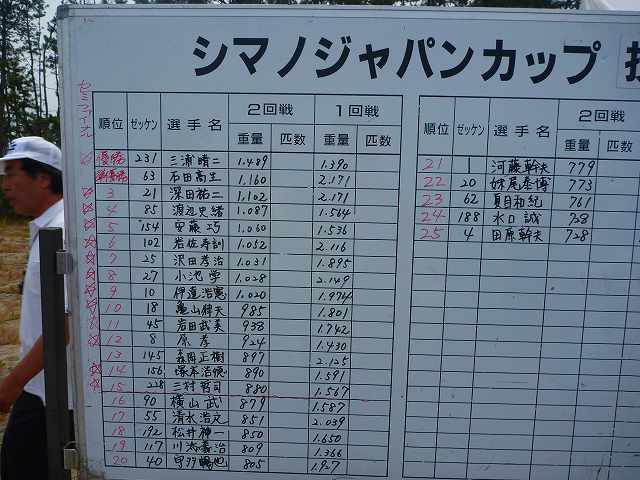 シマノジャパンカップ
セミファイナル
順位 ゼッケン 選手名 2回戦 1回戦
重量 匹数 重量 匹数
優勝 231 三浦晴二 1.489 1.390
準優勝 63 石田高生 1.160 2.171
3 21 深田祐二 1.102 2.171
4 85 渡辺史緒 1.087 1.564
5 154 安藤巧 1.060 1.536
6 102 岩佐寿訓 1.052 2.116
7 25 沢田孝治 1.031 1.895
8 27 小池学 1.028 2.149
9 10 伊達浩憲 1.020 1.974
10 18 亀山 985 1.801
11 45 岩田武美 938 1.742
12 8 原孝 924 1.430
13 145 森田正樹 897 2.125
14 156 塚本浩俊 890 1.591
15 228 三村哲司 880 1.567
16 90 横山武 879 1.587
17 55 清水浩文 851 2.039
18 192 松井伸一 850 1.650
19 117 義治 809 1.366
20 40 805 1.927
順位 ゼッケン 選手名 2回戦
重量
21 1 河藤幹夫 779
22 20 妹尾泰博 773
23 62 夏目和紀 761
24 188 水口誠 738
25 4 田原幹夫 728